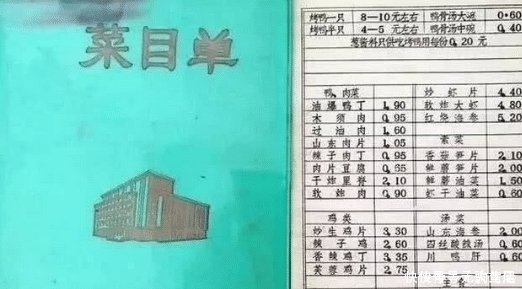 菜目单
烤鸭一只 8-10元左右 鸭骨汤大碗 0.60
烤鸭半只 4-5元左右 鸭骨汤中碗 0.40
葱酱料只供吃烤鸭用每份0.20元
鸭、肉菜
油爆鸭丁 1.90
木须肉 0.95
过油肉 1.60
山东肉片 1.05
辣子肉丁 0.95
肉片豆腐 0.65
干炸里脊 2.10
软炸肉 0.90
鸡类
炒生鸡片 3.30
辣子鸡 2.60
香辣鸡丁 3.35
芙蓉鸡片 2.75
炒虾片 4.40
软炸大虾 4.80
红烧海参 5.20
素菜
香菇笋片 2.10
鲜蘑笋片 2.00
鲜蘑油菜 1.50
虾干油菜 0.60
汤菜
山东海参 2.00
四丝酸辣汤 0.60
川鸭肝 0.60
主食